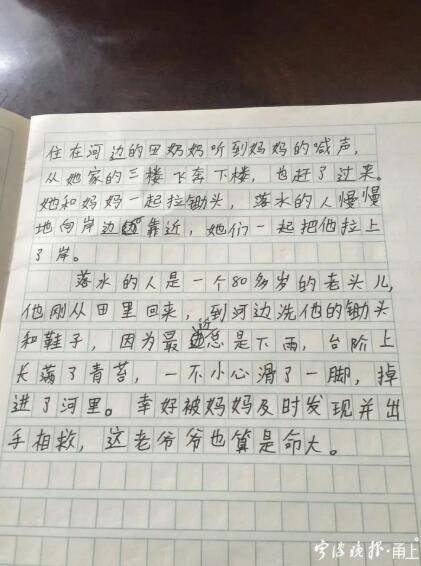 住在河边的田奶奶听到妈妈的喊声，
从她家的三楼飞奔下楼，也赶了过来。
她和妈妈一起拉锄头，落水的人慢慢
地向岸边靠近，她们一起把他拉上
了岸。
落水的人是一个80多岁的老头儿，
他刚从田里回来，到河边洗他的锄头
和鞋子，因为最近总是下雨，台阶上
长满了青苔，一不小心滑了一脚，掉
进了河里。幸好被妈妈及时发现并出
手相救，这老爷爷也算是命大。
宁波晚报·甬上